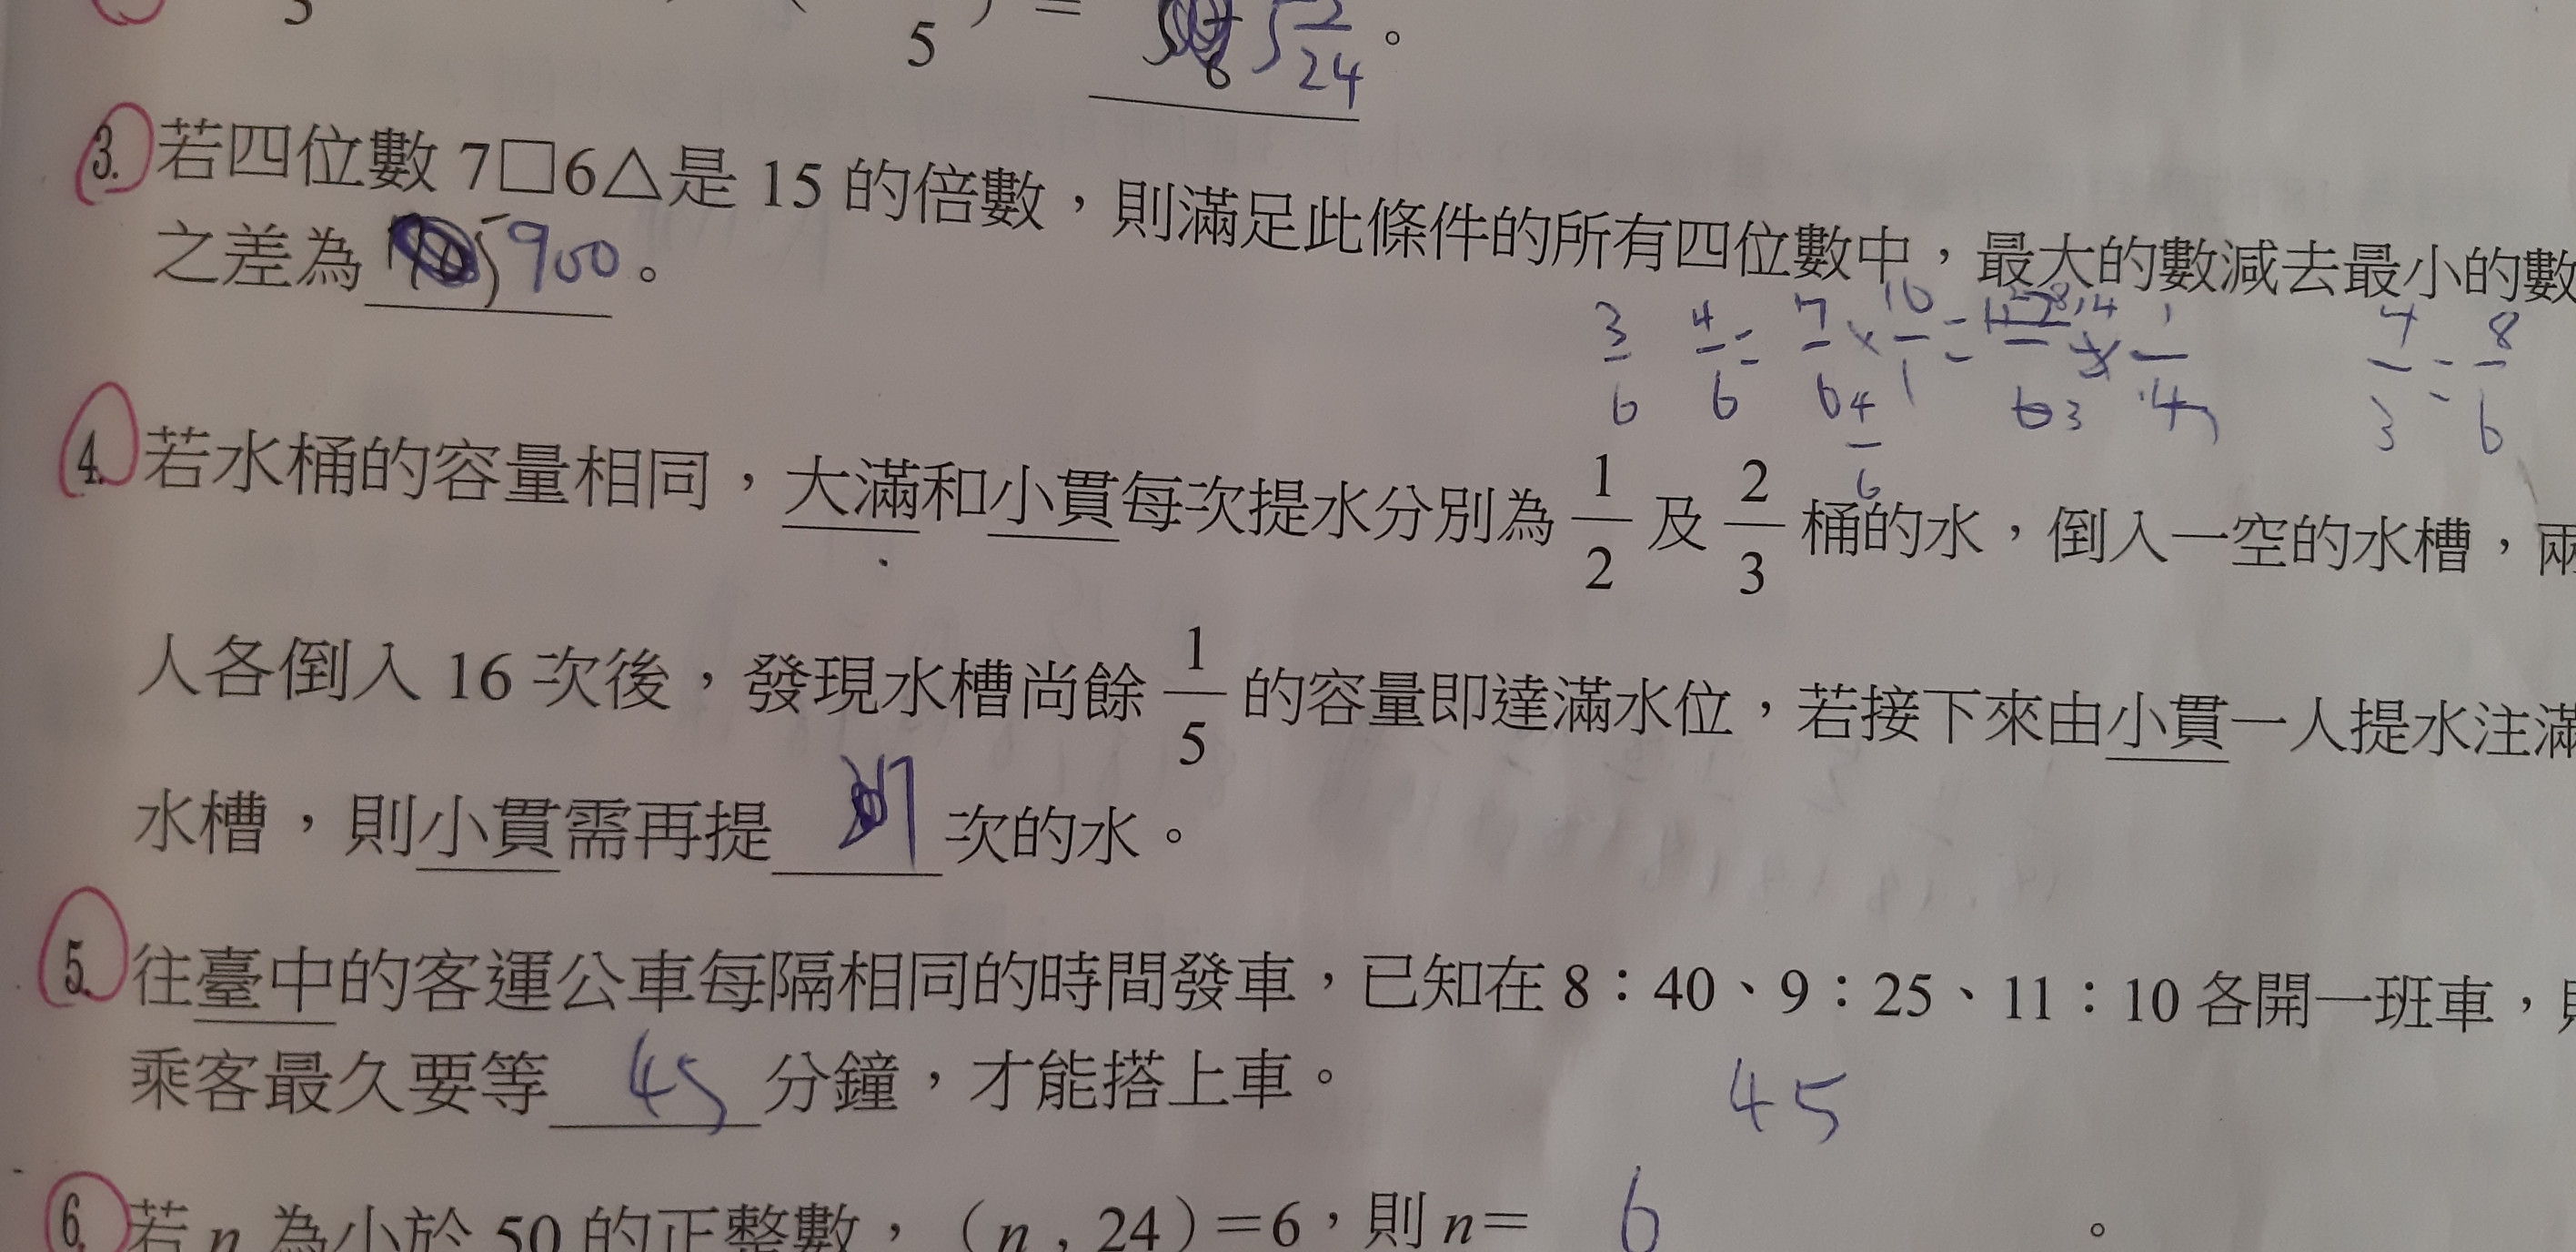 5 ) = 5 2/24 。
3. 若四位數 7□6△是 15 的倍數，則滿足此條件的所有四位數中，最大的數減去最小的數
之差為 900 。
3/6 4/6 = 7/6 × 16/1 =
4/3 = 8/6
4/6
4. 若水桶的容量相同，大滿和小貫每次提水分別為 1/2 及 2/3 桶的水，倒入一空的水槽，兩
人各倒入 16 次後，發現水槽尚餘 1/5 的容量即達滿水位，若接下來由小貫一人提水注滿
水槽，則小貫需再提 次的水。
5. 往臺中的客運公車每隔相同的時間發車，已知在 8：40、9：25、11：10 各開一班車，則
乘客最久要等 45 分鐘，才能搭上車。
45
6. 若 n 為小於 50 的正整數，（n , 24）＝6，則 n＝ 6 。